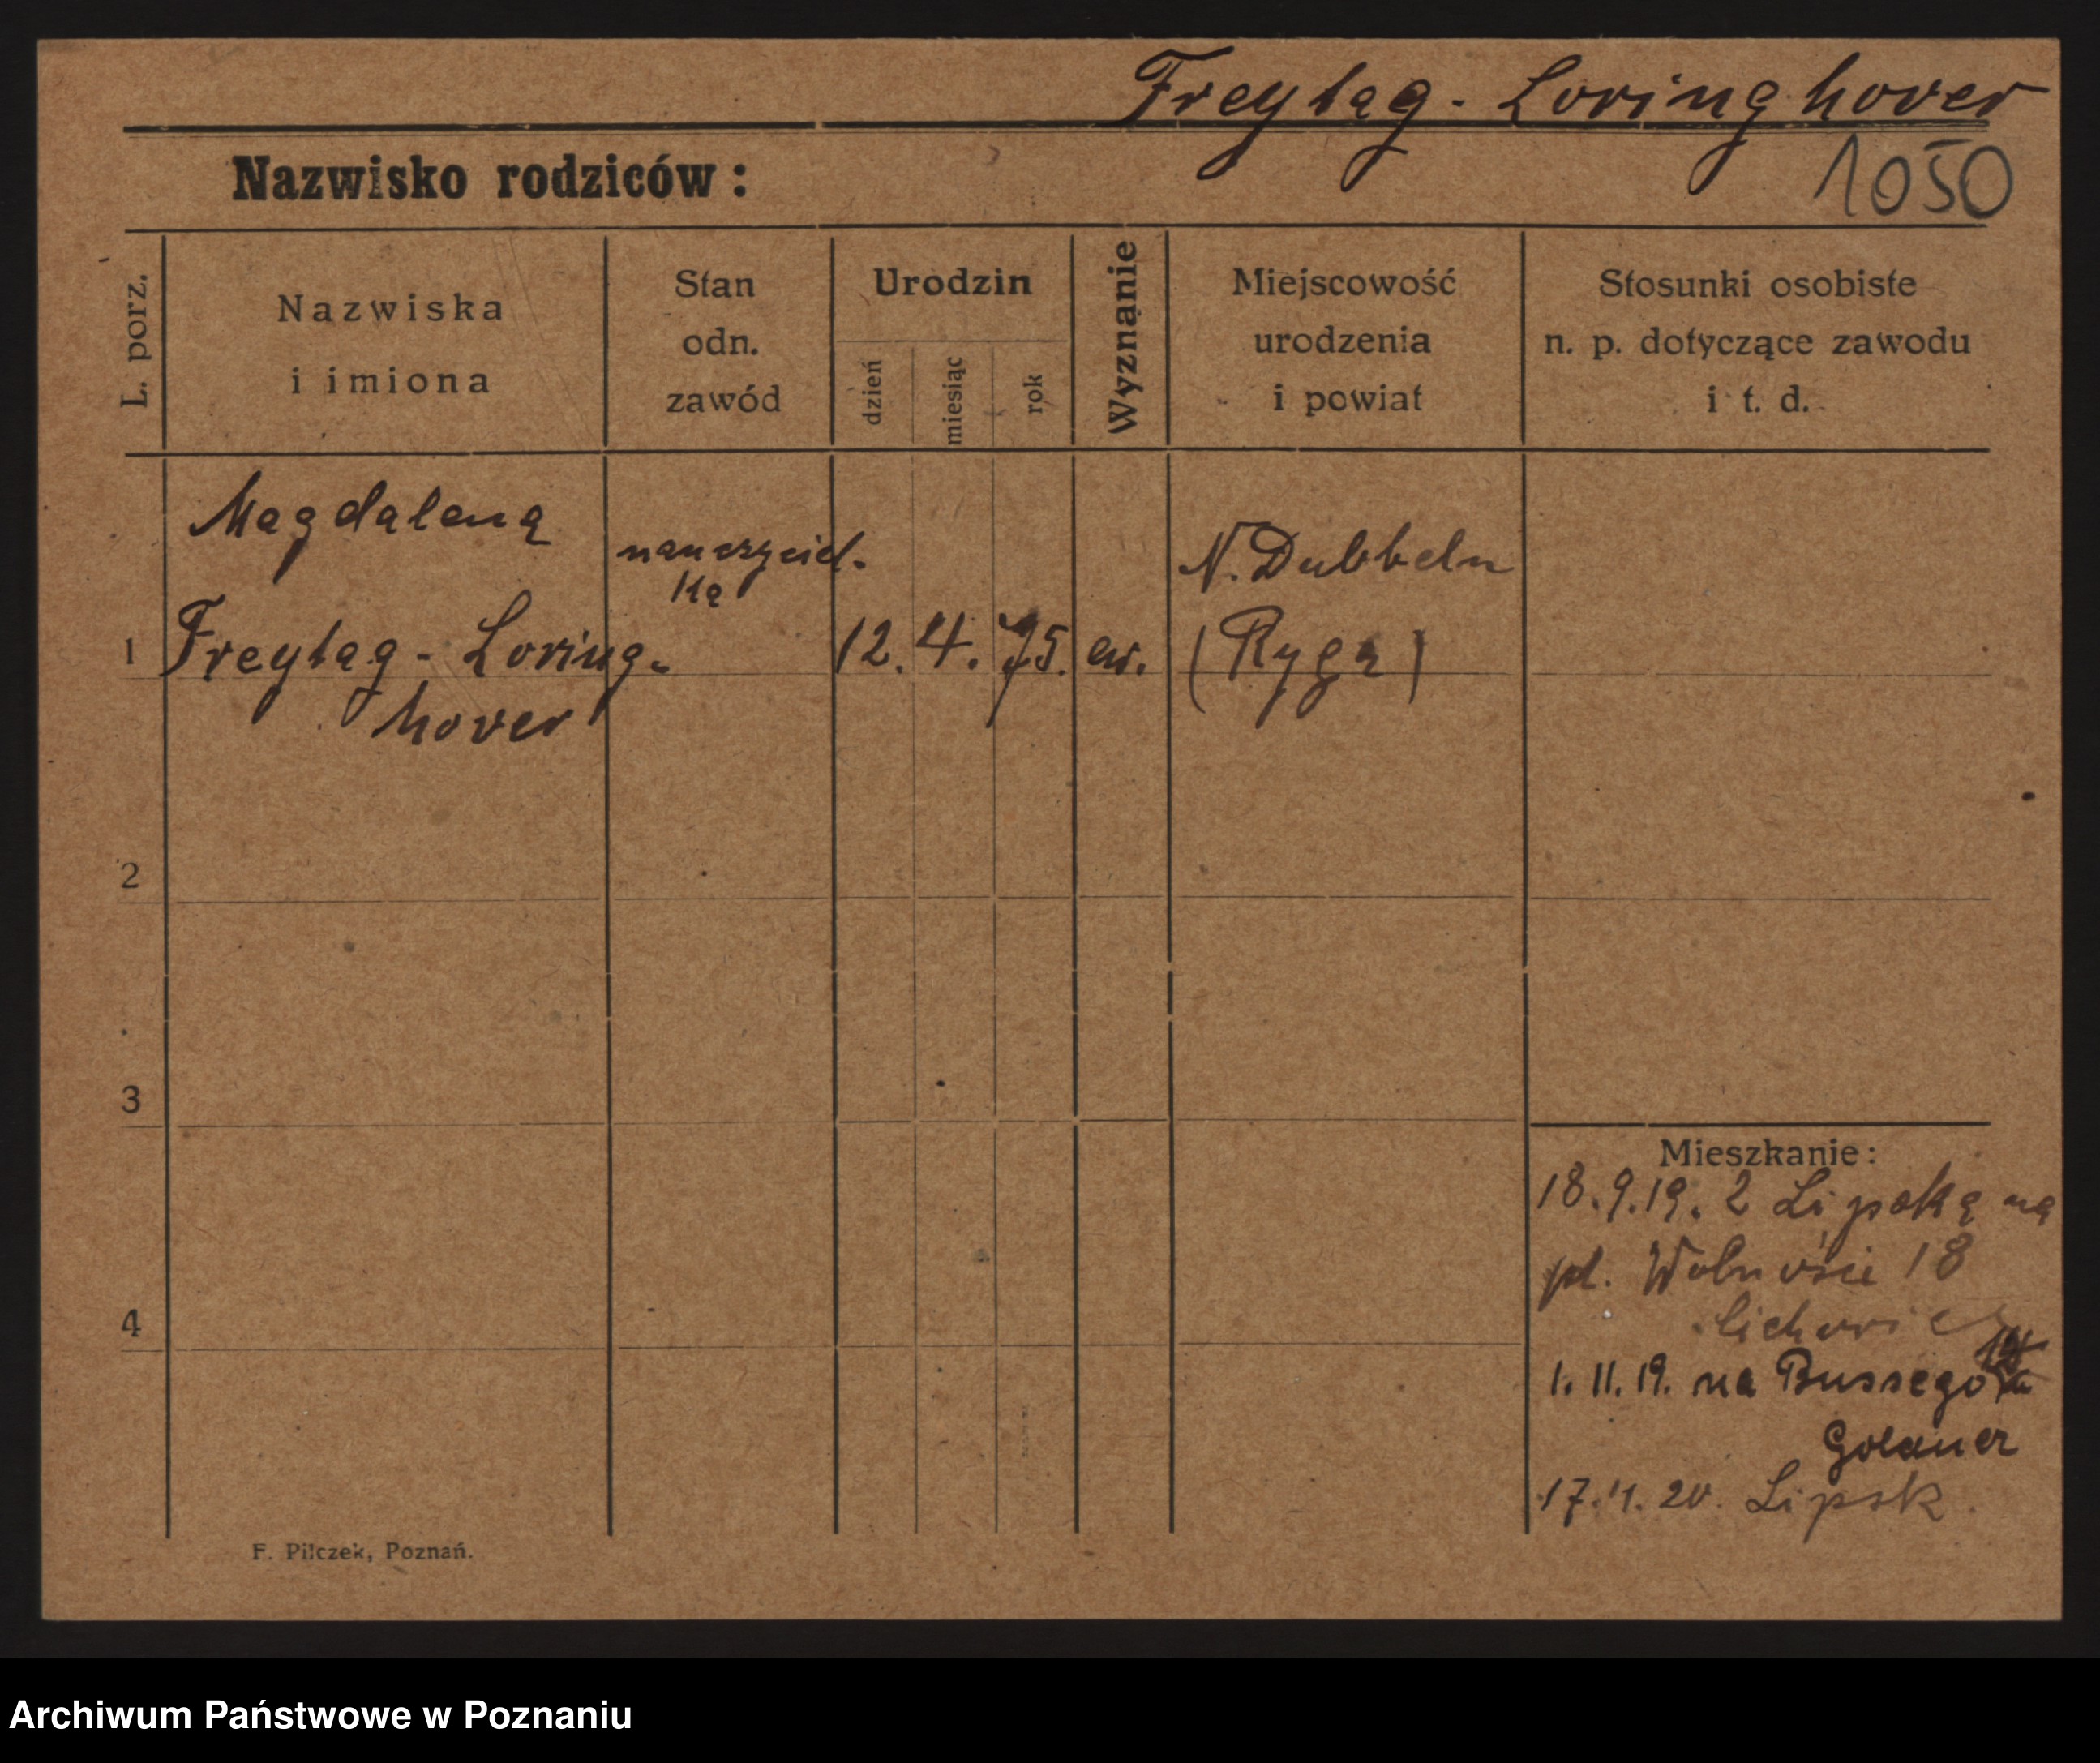 Freytag-Loringhover
1050
Nazwisko rodziców:
L. porz.
Nazwiska
i imiona
Stan
odn.
zawód
Urodzin
dzień
miesiąc
rok
Wyznanie
Miejscowość
urodzenia
i powiat
Stosunki osobiste
n. p. dotyczące zawodu
i t. d.
Magdalena
nauczyciel-
ka
N. Dubbeln
1 Freytag-Loring- 12. 4. 75. ew. (Ryga)
hover
2
3
4
Mieszkanie:
18.9.19. z Lipska na
pl. Wolności 18
1. 11. 19. na Bussego
17.4.20. Lipsk
F. Pilczek, Poznań.
Archiwum Państwowe w Poznaniu